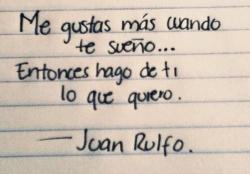 Me gustas más cuando
te sueño...
Entonces hago de ti
lo que quiero.
— Juan Rulfo.